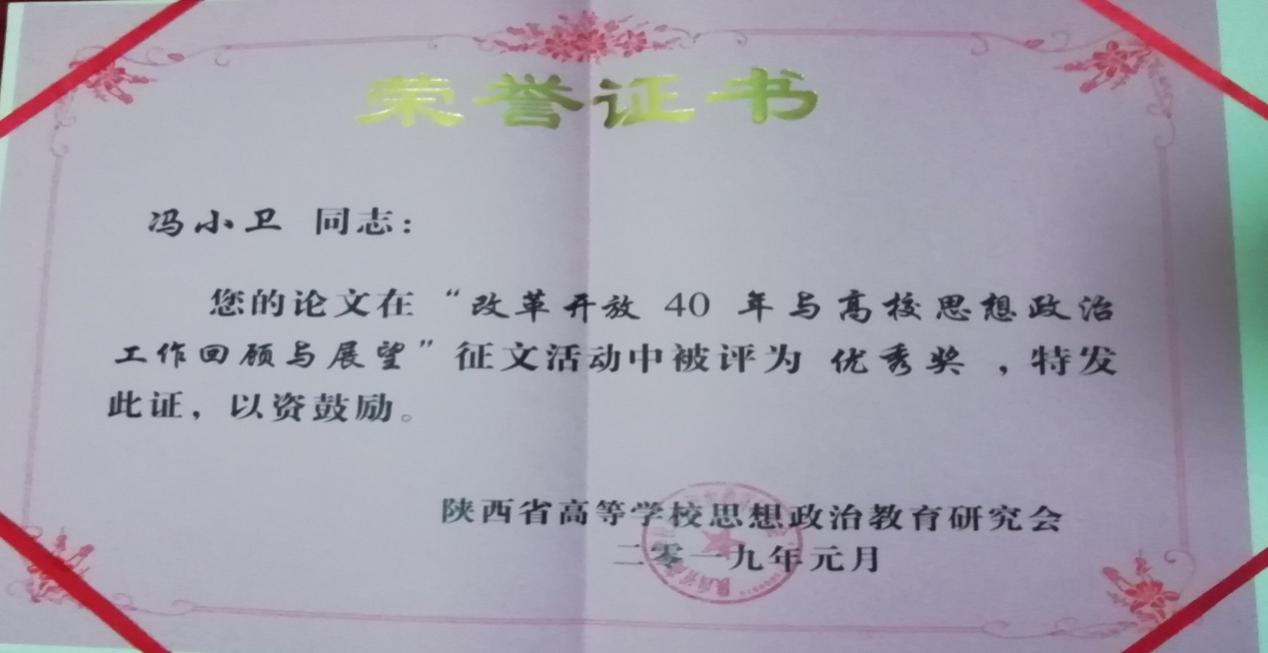 荣誉证书
冯小卫 同志：
您的论文在“改革开放 40 年与高校思想政治
工作回顾与展望”征文活动中被评为 优秀奖 ，特发
此证，以资鼓励。
陕西省高等学校思想政治教育研究会
二零一九年元月